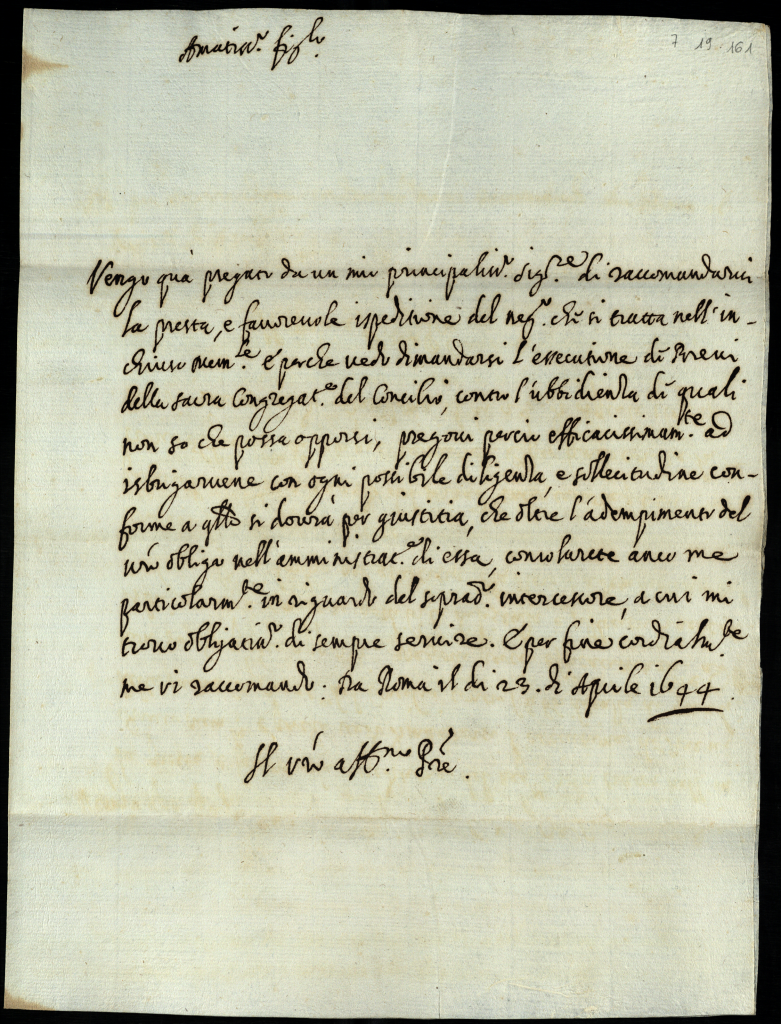 7 19 161
Amatiss.r figlo
Vengo quà pregato da un mio principaliss.r Sig.re di raccomandarvi
la presta, e favorevole ispeditione del neg.o che si tratta nell'in-
chiuso mem.le E perche vedo dimandarsi l'essecutione di Brevi
della sacra Congregat.e del Concilio, contro l'ubbidienza di quali
non so che possa opporsi, pregovi perciò efficacissimam.te ad
isbrigarvene con ogni possibile diligenza, e sollecitudine con-
forme a q.llo si dovrà per giustitia, che oltre l'adempimento del
vro obligo nell'amministrat.e di essa, consolarete anco me
particolarm.te in riguardo del soprad.o intercessore, a cui mi
trovo obligatiss.o di sempre servire. E per fine cordialm.te
me vi raccomando. Da Roma il di 23. di Aprile 1644
Il vro aff.mo Pre.